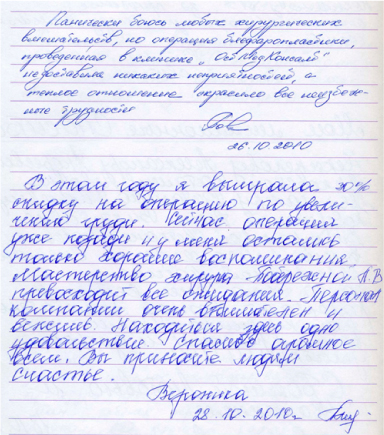 Панически боюсь любых хирургических
вмешательств, но операция блефаропластики,
проведённая в клинике „Ост МедКонсалт"
не доставила никаких неприятностей, а
теплое отношение скрасило все неизбеж-
ные трудности
26.10.2010
В этом году я выиграла 30%
скидку на операцию по увели-
чению груди. Сейчас операция
уже позади и у меня остались
только хорошие воспоминания.
Мастерство хирурга Побережной А.В
превосходит все ожидания. Персонал
компании очень внимателен и
вежлив. Находиться здесь одно
удовольствие. Спасибо огромное
всем. Вы приносите людям
счастье.
Вероника
28.10.2010г